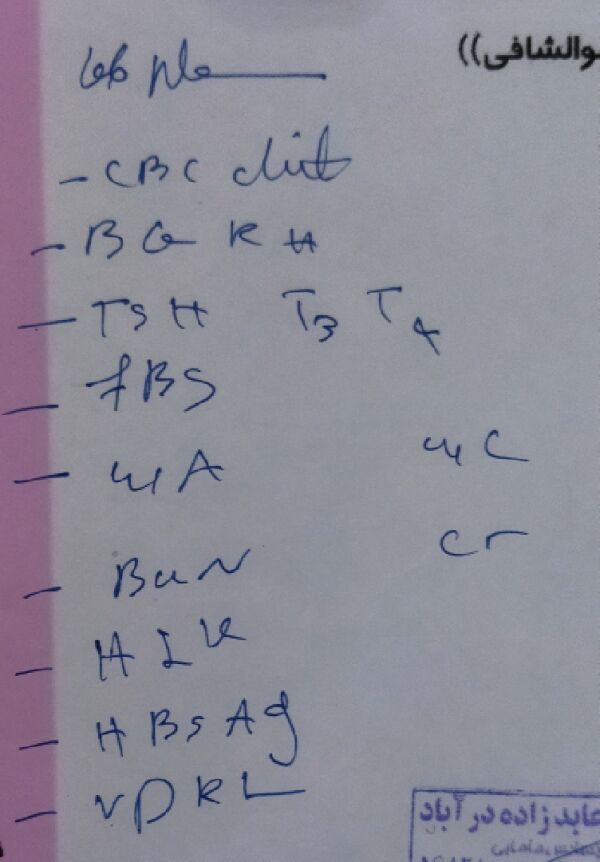 والشافی))
Lab plz
- CBC diff
- BG RH
- TSH T3 T4
- FBS
- U/A U/C
- BUN Cr
- HIV
- HBsAg
- VDRL
عابدزاده درآباد